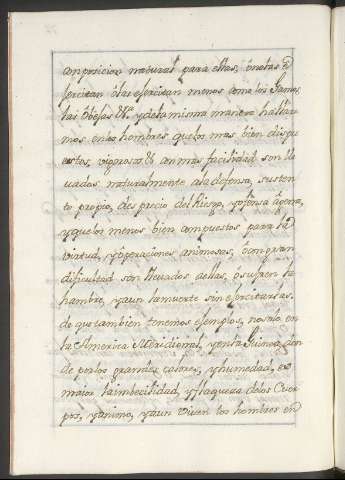 composicion natural para ellas, ò no las e
sercitan ò las esercitan menos como los Gamos,
las Obejas &a. y de la misma manera halla
mos en los hombres que los mas bien dispu
estos, vigorosos & con mas facilidad son lle
vados naturalmente a la defensa, susten
to propio, desprecio del Riesgo, y ofensa agena,
y que los menos bien compuestos para la
virtud, y operaciones animosas, ò con gran
dificultad son llevados a ellas, ò sufren la
hambre, y aun la muerte sin esercitarlas.
de que tambien tenemos esemplos, no solo en
la America Meridional, y en la Guinea, don
de por los grandes calores, y humedad, es
maior la imbecilidad, y flaqueza de los Cuer
pos, y animo, y aun viven los hombres en